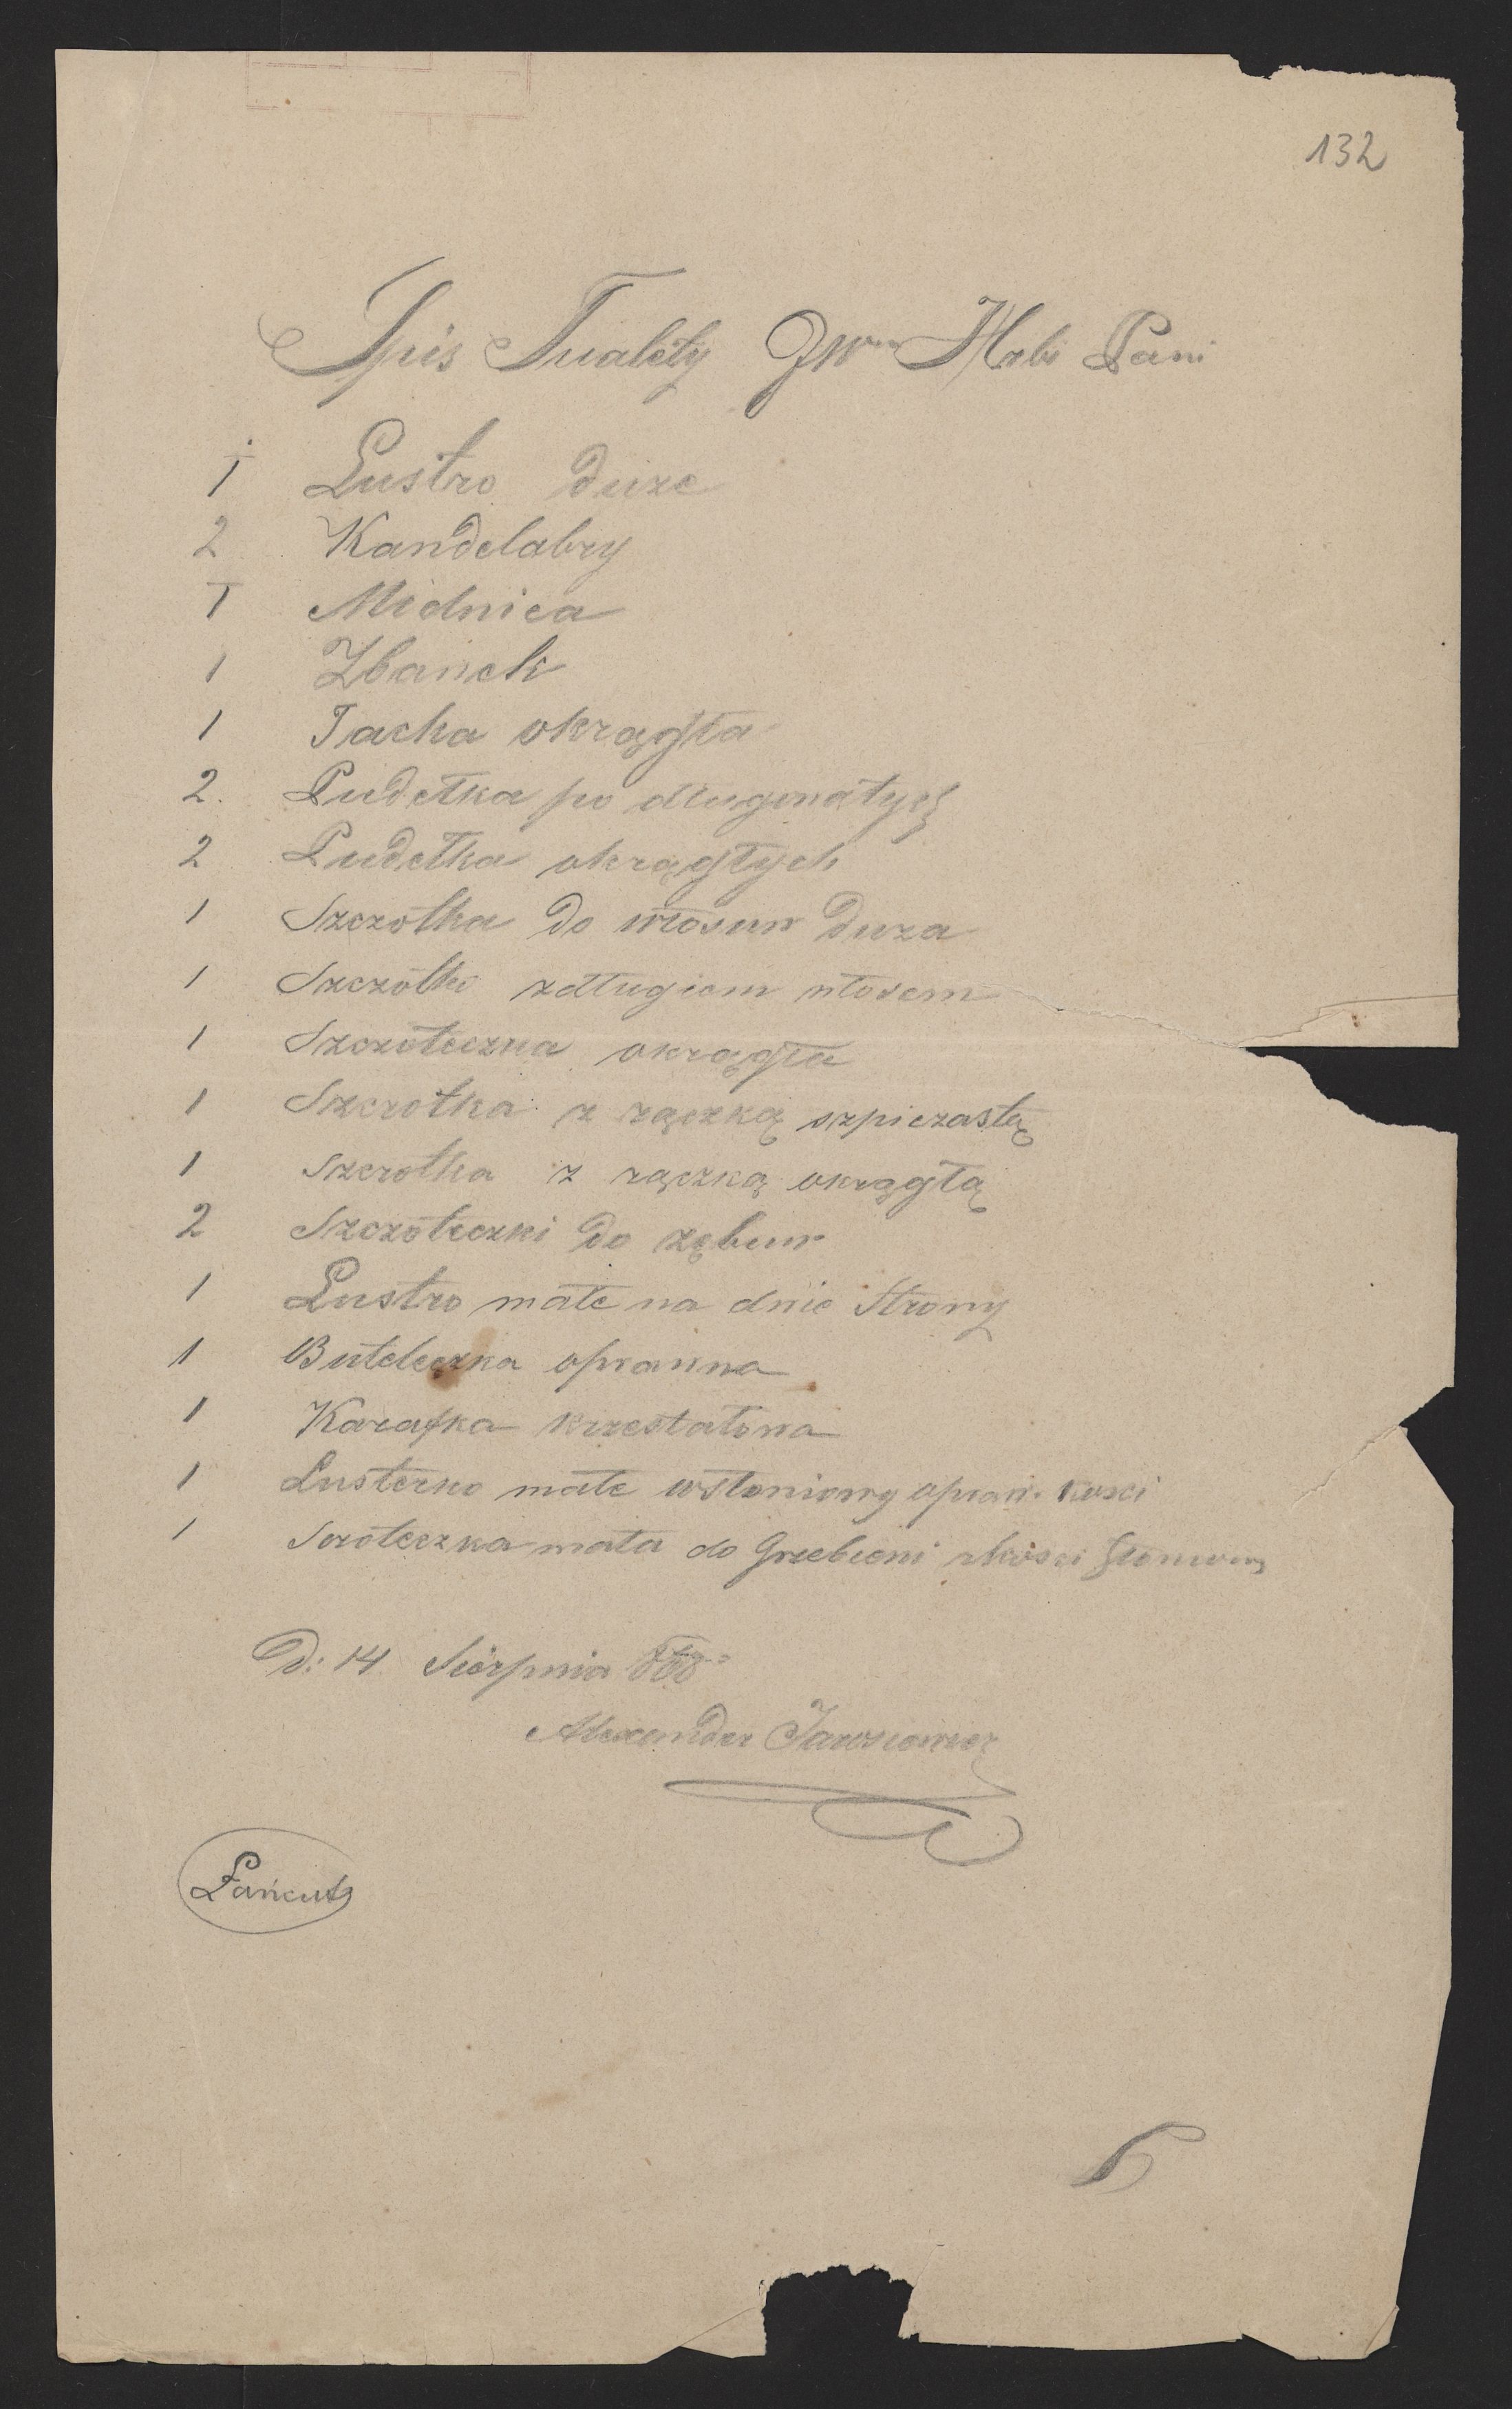 132
Spis Tualety JW Hrbi Pani
1 Lustro duże
2 Kandelabry
1 Mednica
1 Zbanek
1 Tacka okrągła
2. Pudełka po długowatych
2 Pudełka okrągłych
1 Szczotka do włosuw duza
1 Szczotka zdługiem włosem
1 Szczoteczka okrągła
1 Szczotka z rączką szpiczastą
1 Szczotka z rączką okrągłą
2 Szczoteczki do zębuw
1 Lustro małe na dwie Strony
1 Buteleczka oprawna
1 Karafka krzestałowa
1 Lusterko małe wsłoniowy opraw. kosci
1 Szoteczka mała do Grzebieni zkosci
D: 14 Sierpnia
Alexander
Łańcut